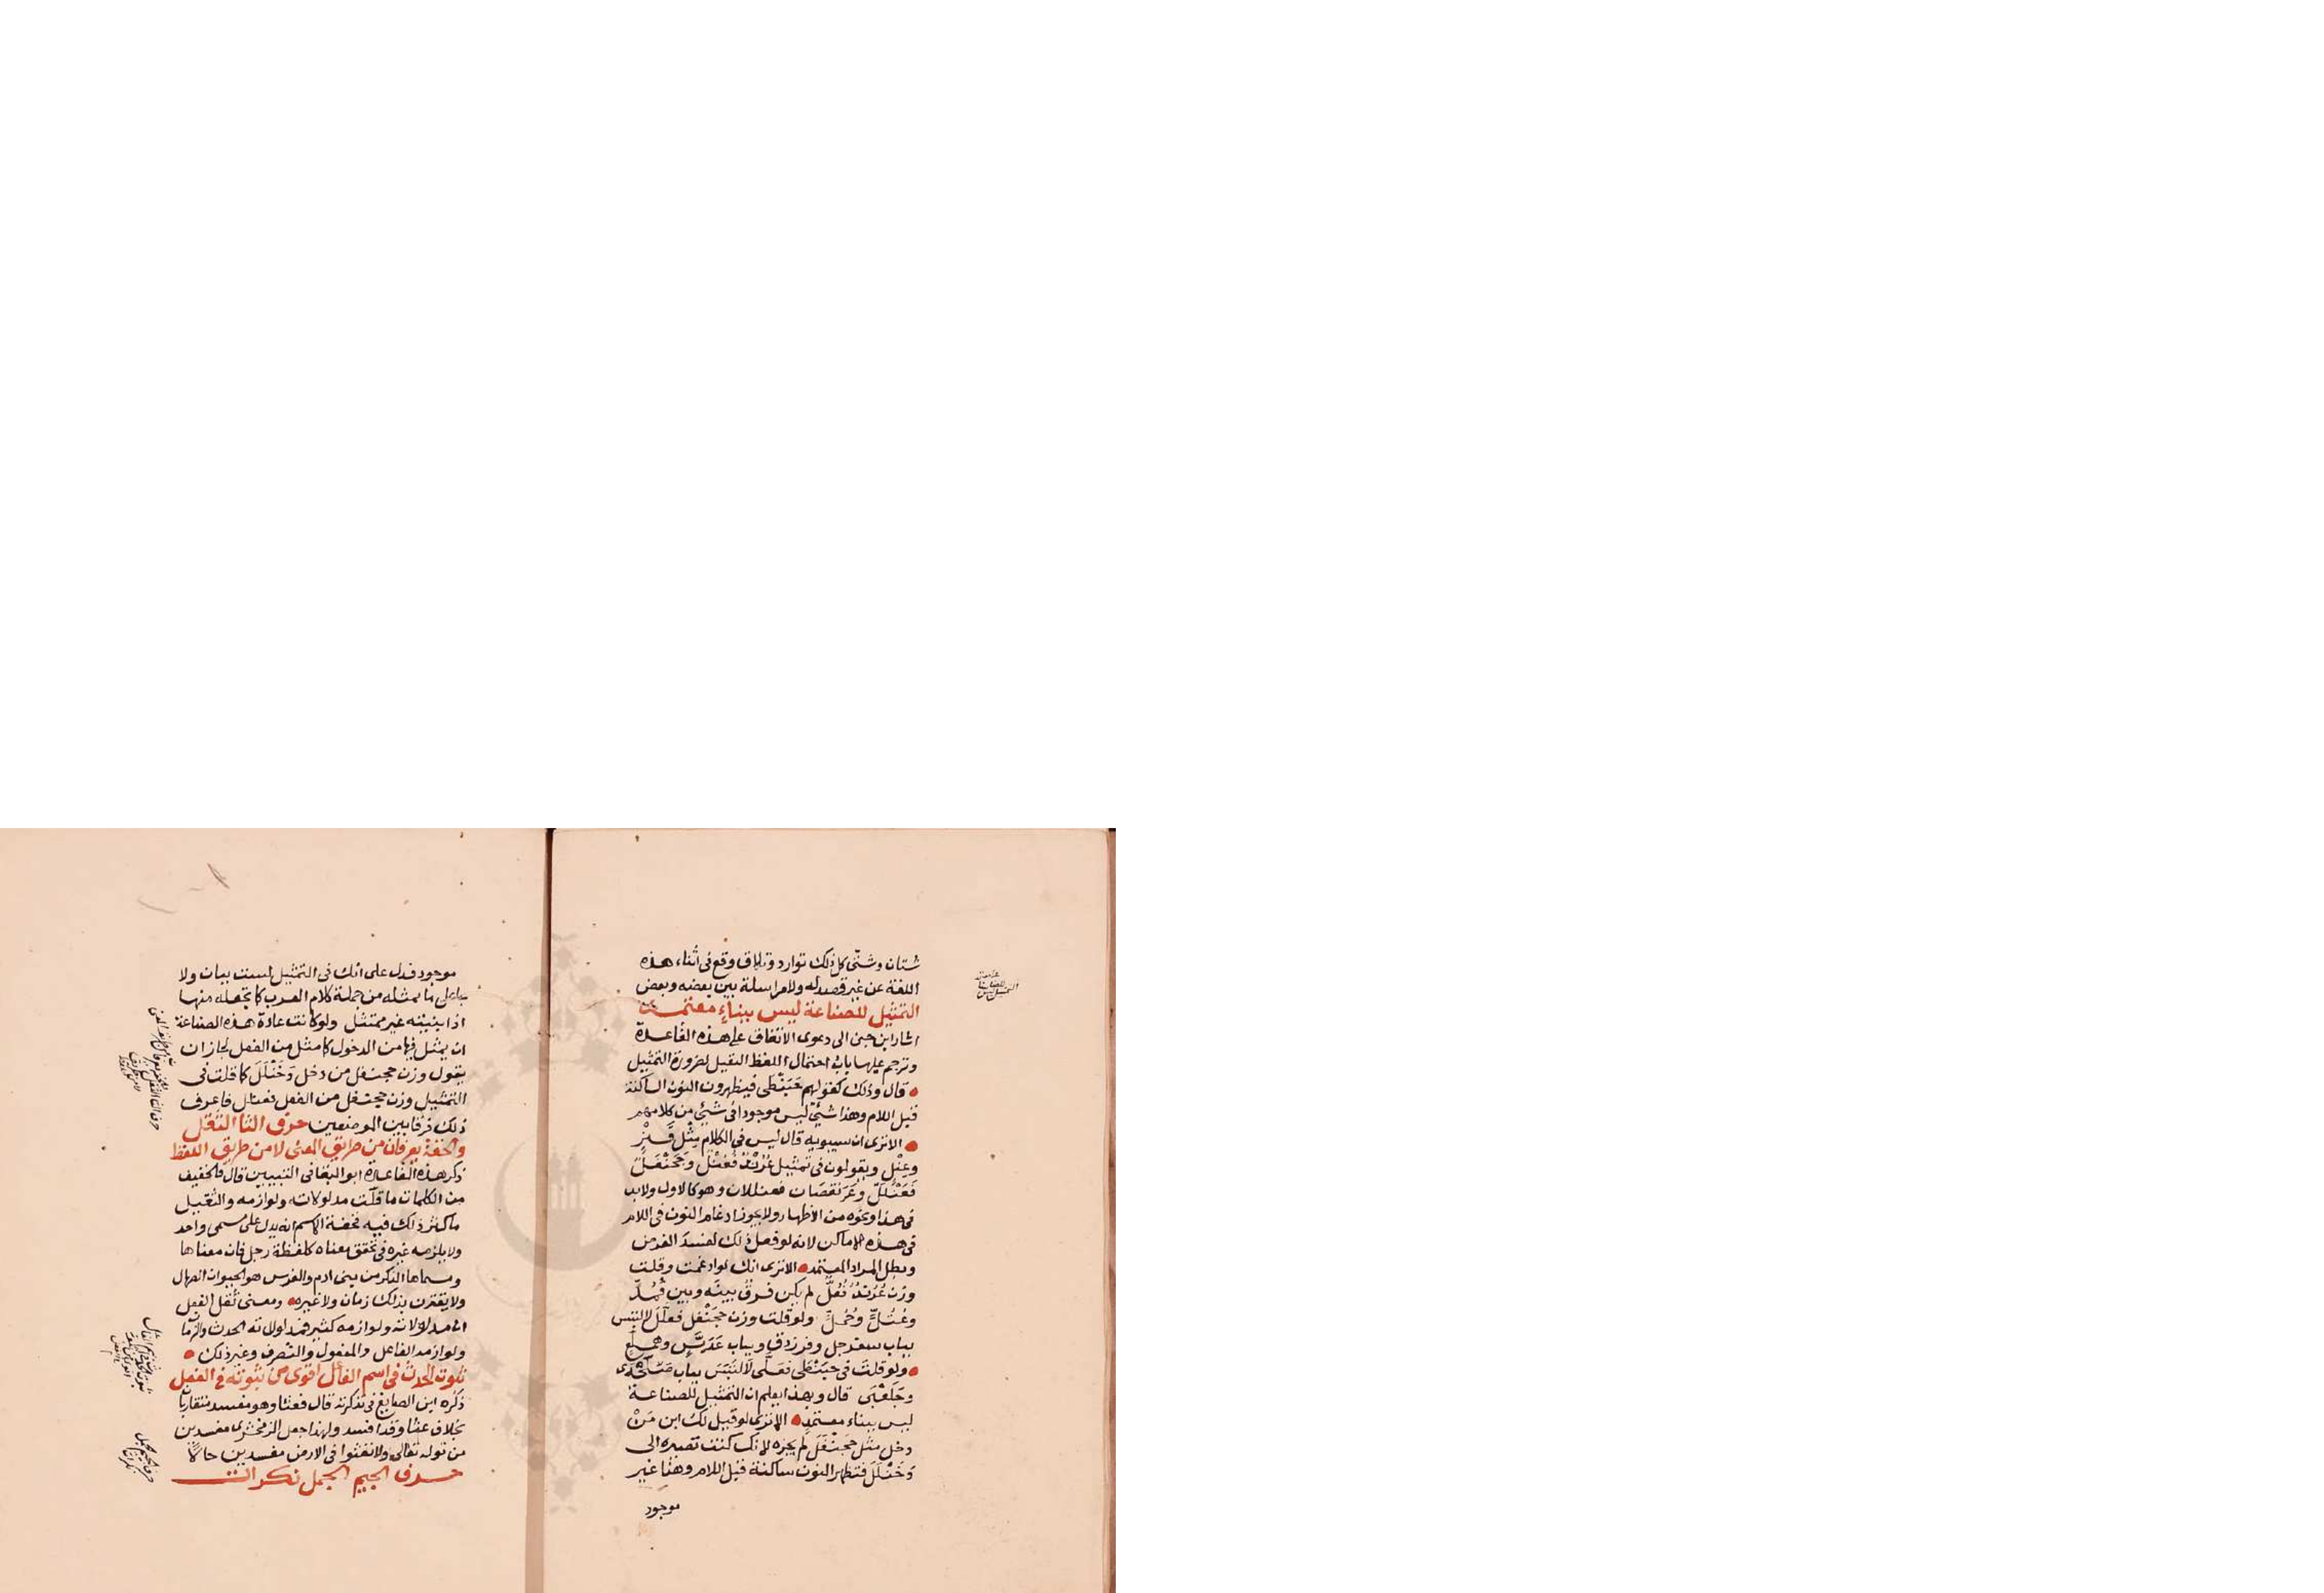 شتان وشتى كل ذلك توارد وتلاق وقع فى أثناء هذه
اللغة عن غير قصد له ولا مراسلة بين بعضه وبعض
التمثيل للصناعة ليس ببناء معتمد
اشار ابن جنى الى دعوى الاتفاق على هذه القاعدة
وترجم عليها باب احتمال اللفظ الثقيل لضرورة التمثيل
قال وذلك كقولهم حَبَنْطَى فيظهرون النون الساكنة
قبل اللام وهذا شئ ليس موجودا فى شئ من كلامهم
الا ترى ان سيبويه قال ليس فى الكلام مثل قَنْر
وعِنْل ويقولون فى تمثيل عُرُنْد فُعُنْل وجَحَنْفَل
فَعَنْلَل وعَرَنْقَصَان فعنللان وهو كالاول ولا بد
فى هذا ونحوه من الاظهار ولا يجوز ادغام النون فى اللام
فى هذه الاماكن لانه لو فعل ذلك لفسد الغرض
وبطل المراد المعتمد الا ترى انك لو ادغمت وقلت
وزن عُرُنْد فُعُلّ لم يكن فرق بينه وبين قُمُدّ
وعُتُلّ وحُمُلّ ولو قلت وزن جحَنْفَل فَعَلَّل لالتبس
بباب سفرجل وفرزدق وبباب عَدَبَّس وهملع
ولو قلت فى حبَنْطَى فَعَلَّى لالتَبَسَ بباب صَلَخْدَى
وجَلَعْبَى قال وبهذا يعلم ان التمثيل للصناعة
ليس ببناء معتمد الا ترى لو قيل لك ابن مِنْ
دخل مثل جَحَنْفَل لم يجزه لانك كنت تصيره الى
دَخَنْلَل فتظهر النون ساكنة قبل اللام وهذا غير
موجود
موجود فدل على انك فى التمثيل لست ببان ولا
جاعل ما يمثله من جملة كلام العرب كما تجعله منها
اذا بنيته غير ممتثل ولو كانت عادة هذه الصناعة
ان يمثل فيها من الدخول كما مثل من الفعل لجاز ان
يقول وزن جحنفل من دخل دَخَنْلَل كما قلت فى
التمثيل وزن جحنفل من الفعل فعنلل فاعرف
ذلك فرقا بين الموضعين حرف الثا الثقل
والخفة يعرفان من طريق المعنى لا من طريق اللفظ
ذكر هذه القاعدة ابو البقا فى التبيين قال فالخفيف
من الكلمات ما قلّت مدلولاته ولوازمه والثقيل
ما كثر ذلك فيه فخفة الاسم انه يدل على مسمى واحد
ولا يلزمه غيره فى تحقق معناه كلفظة رجل فان معناها
ومسماها الذكر من بنى ادم والفرس هو الحيوان الصهال
ولا يقترن بذلك زمان ولا غيره ومعنى ثقل الفعل
ان مدلولاته ولوازمه كثير فمدلولاته الحدث والزما
ولوازمه الفاعل والمفعول والتصرف وغير ذلك
ثبوت الحدث فى اسم الفاعل اقوى من ثبوته فى الفعل
ذكره ابن الصايغ فى تذكرته قال فعثا وهو مفسد متقاربا
بخلاف عثا وقد افسد ولهذا جعل الزمخشرى مفسدين
من قوله تعالى ولا تعثوا فى الارض مفسدين حالا
حرف الجيم الجمل نكرات